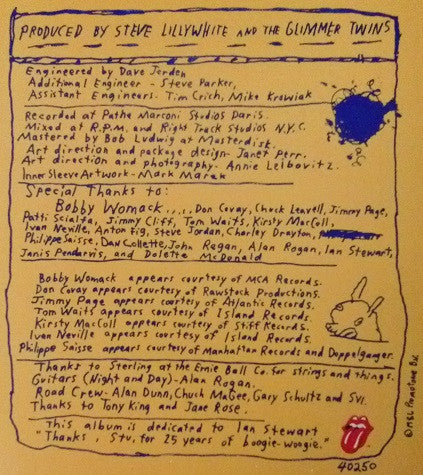 PRODUCED BY STEVE LILLYWHITE AND THE GLIMMER TWINS
Engineered by Dave Jerden
Additional Engineer - Steve Parker,
Assistant Engineers - Tim Crich, Mike Krowiak
Recorded at Pathe Marconi Studios Paris.
Mixed at R.P.M. and Right Track Studios N.Y.C.
Mastered by Bob Ludwig at Masterdisk.
Art direction and package design - Janet Perr.
Art direction and photography - Annie Leibovitz.
Inner Sleeve Artwork - Mark Marek
Special Thanks to:
Bobby Womack...., Don Covay, Chuck Leavell, Jimmy Page,
Patti Scialfa, Jimmy Cliff, Tom Waits, Kirsty MacColl,
Ivan Neville, Anton Fig, Steve Jordan, Charley Drayton,
Philippe Saisse, Dan Collette, John Regan, Alan Rogan, Ian Stewart,
Janis Pendarvis, and Dolette McDonald
Bobby Womack appears courtesy of MCA Records.
Don Covay appears courtesy of Rawstock Productions.
Jimmy Page appears courtesy of Atlantic Records.
Tom Waits appears courtesy of Island Records.
Kirsty MacColl appears courtesy of Stiff Records.
Ivan Neville appears courtesy of Island Records.
Philippe Saisse appears courtesy of Manhattan Records and Doppelganger.
Thanks to Sterling at the Ernie Ball Co. for strings and things.
Guitars (Night and Day) - Alan Rogan.
Road Crew - Alan Dunn, Chuck MaGee, Gary Schultz and Svi.
Thanks to Tony King and Jane Rose.
This album is dedicated to Ian Stewart
"Thanks, Stu, for 25 years of boogie-woogie."
40250
Promotone B.V.